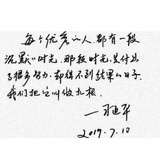 每个优秀的人，都有一段
沉默的时光，那段时光，是付出
了很多努力，却得不到结果的日子，
我们把它叫做扎根。
2019.7.10